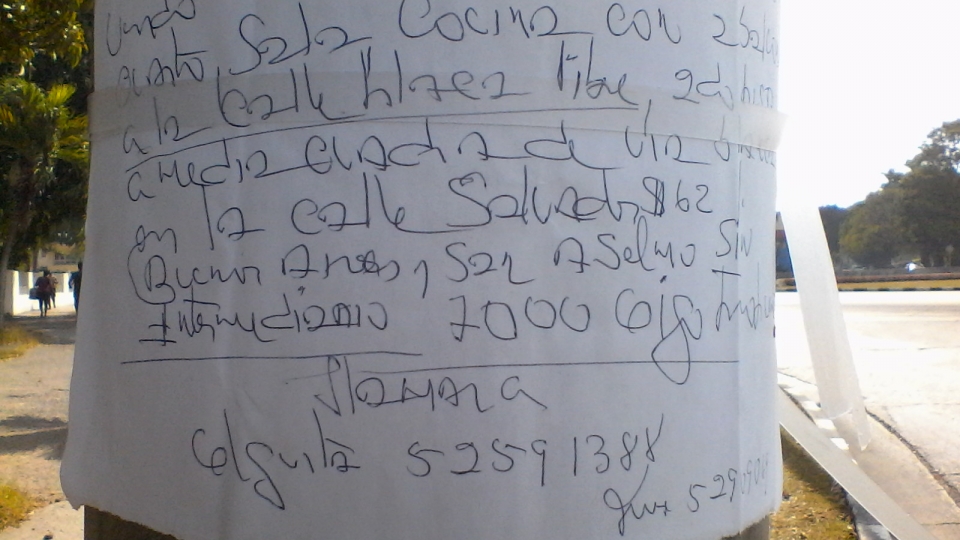 vendo
cuarto, Sala Cocina con 2 balco
a la calle placa libre, 2do piso
a media cuadra de via
en la calle Salvador #162
(Buenos Aires, San Aselmo Sin
Intermediario 7000 fijo
Llamar a
elguita 52591388